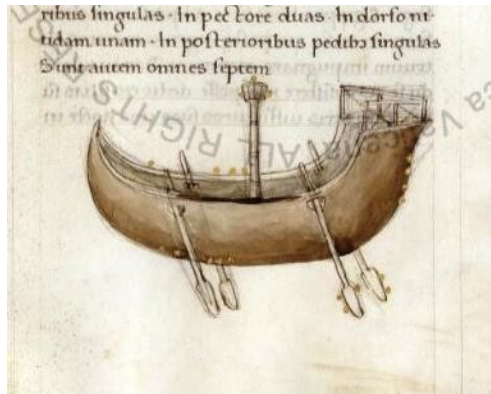 ribus singulas · In pectore duas · In dorso ni-
tidam unam · In posterioribus pedibꝫ singulas
Sunt autem omnes septem
ALL RIGHTS